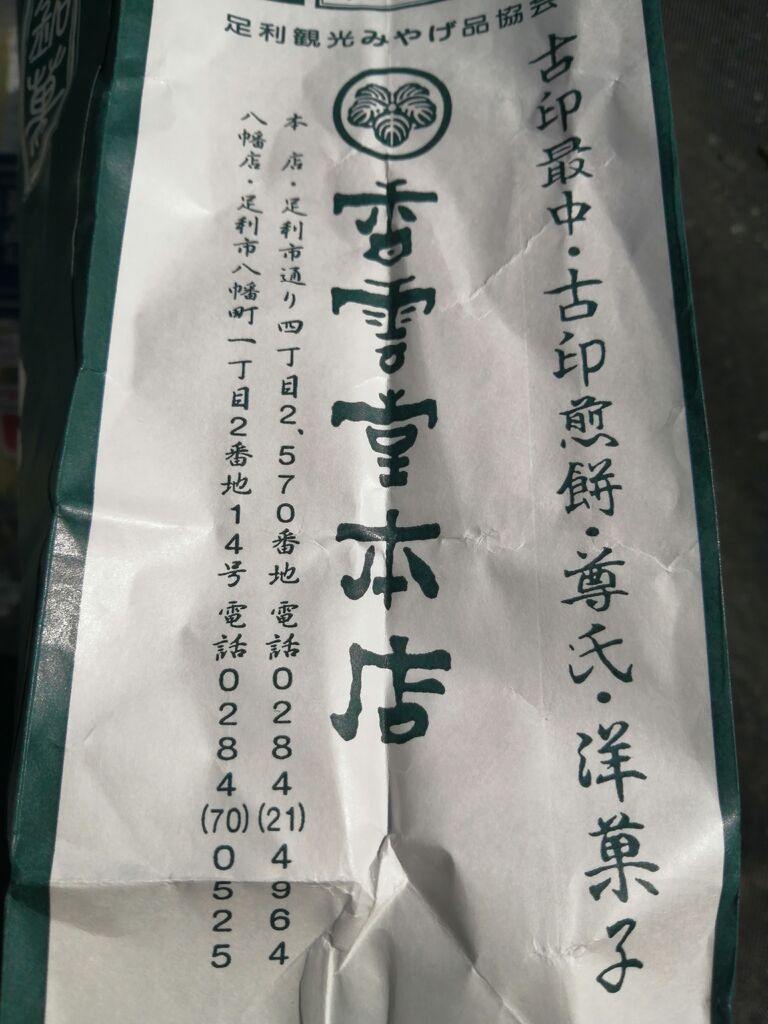 足利観光みやげ品協会
古印最中・古印煎餅・尊氏・洋菓子
香雲堂本店
本店・足利市通り四丁目2、570番地 電話0284(21)4964
八幡店・足利市八幡町一丁目2番地14号 電話0284(70)0525